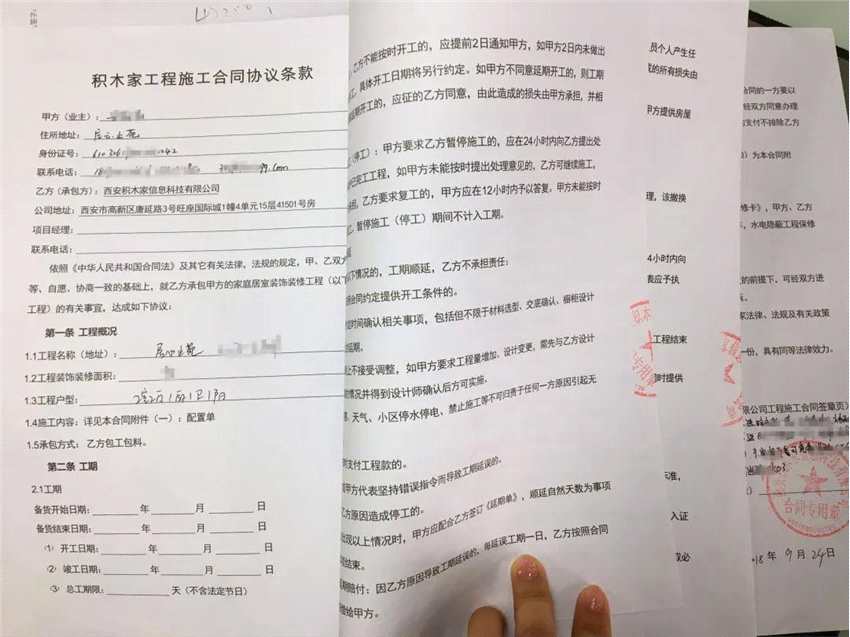 积木家工程施工合同协议条款
甲方（业主）：
住所地址：
身份证号：
联系电话：
乙方（承包方）：西安积木家信息科技有限公司
公司地址：西安市高新区唐延路3号旺座国际城1幢4单元15层41501号房
项目经理：
联系电话：
依照《中华人民共和国合同法》及其它有关法律，法规的规定，甲、乙双方
等、自愿、协商一致的基础上，就乙方承包甲方的家庭居室装饰装修工程（以下
工程）的有关事宜，达成如下协议：
第一条 工程概况
1.1工程名称（地址）：
1.2工程装饰装修面积：
1.3工程户型：2室2厅1厨1卫1阳
1.4施工内容：详见本合同附件（一）：配置单
1.5承包方式：乙方包工包料。
第二条 工期
2.1工期
备货开始日期： 年 月 日
备货结束日期： 年 月 日
（1）开工日期： 年 月 日
（2）竣工日期： 年 月 日
（3）总工期限： 天（不含法定节日）
乙方不能按时开工的，应提前2日通知甲方，如甲方2日内未做出
具体开工日期将另行约定。如甲方不同意延期开工的，则工期
延期开工的，应征的乙方同意，由此造成的损失由甲方承担，并相
（停工）：甲方要求乙方暂停施工的，应在24小时内向乙方提出处
已完工工程，如甲方未能按时提出处理意见的，乙方可继续施工，
乙方要求复工的，甲方应在12小时内予以答复，甲方未能按时
暂停施工（停工）期间不计入工期。
下情况的，工期顺延，乙方不承担责任：
合同约定提供开工条件的。
时间确认相关事项，包括但不限于材料选型、交底确认、橱柜设计
延期。
不接受调整，如甲方要求工程量增加、设计变更，需先与乙方设计
情况并得到设计师确认后方可实施。
天气、小区停水停电、禁止施工等不可归责于任何一方原因引起无
支付工程款的。
甲方代表坚持错误指令而导致工期延误的。
方原因造成停工的。
现以上情况时，甲方应配合乙方签订《延期单》，顺延自然天数为事项
结束。
赔付：因乙方原因导致工期延误的，每延误工期一日，乙方按照合同
给甲方。
员个人产生任
的所有损失由
甲方提供房屋
理，该撤换
4小时内向
表应予执
工程结束
时提供
标准，
入证
合同的一方要以
经双方同意办理
支付不排除乙方
）为本合同附
修卡》，甲方、乙方
，水电隐蔽工程保修
的前提下，可经双方进
家法律、法规及有关政策
一份，具有同等法律效力。
限公司工程施工合同签章页）
合同专用章
18 年 9 月 24 日